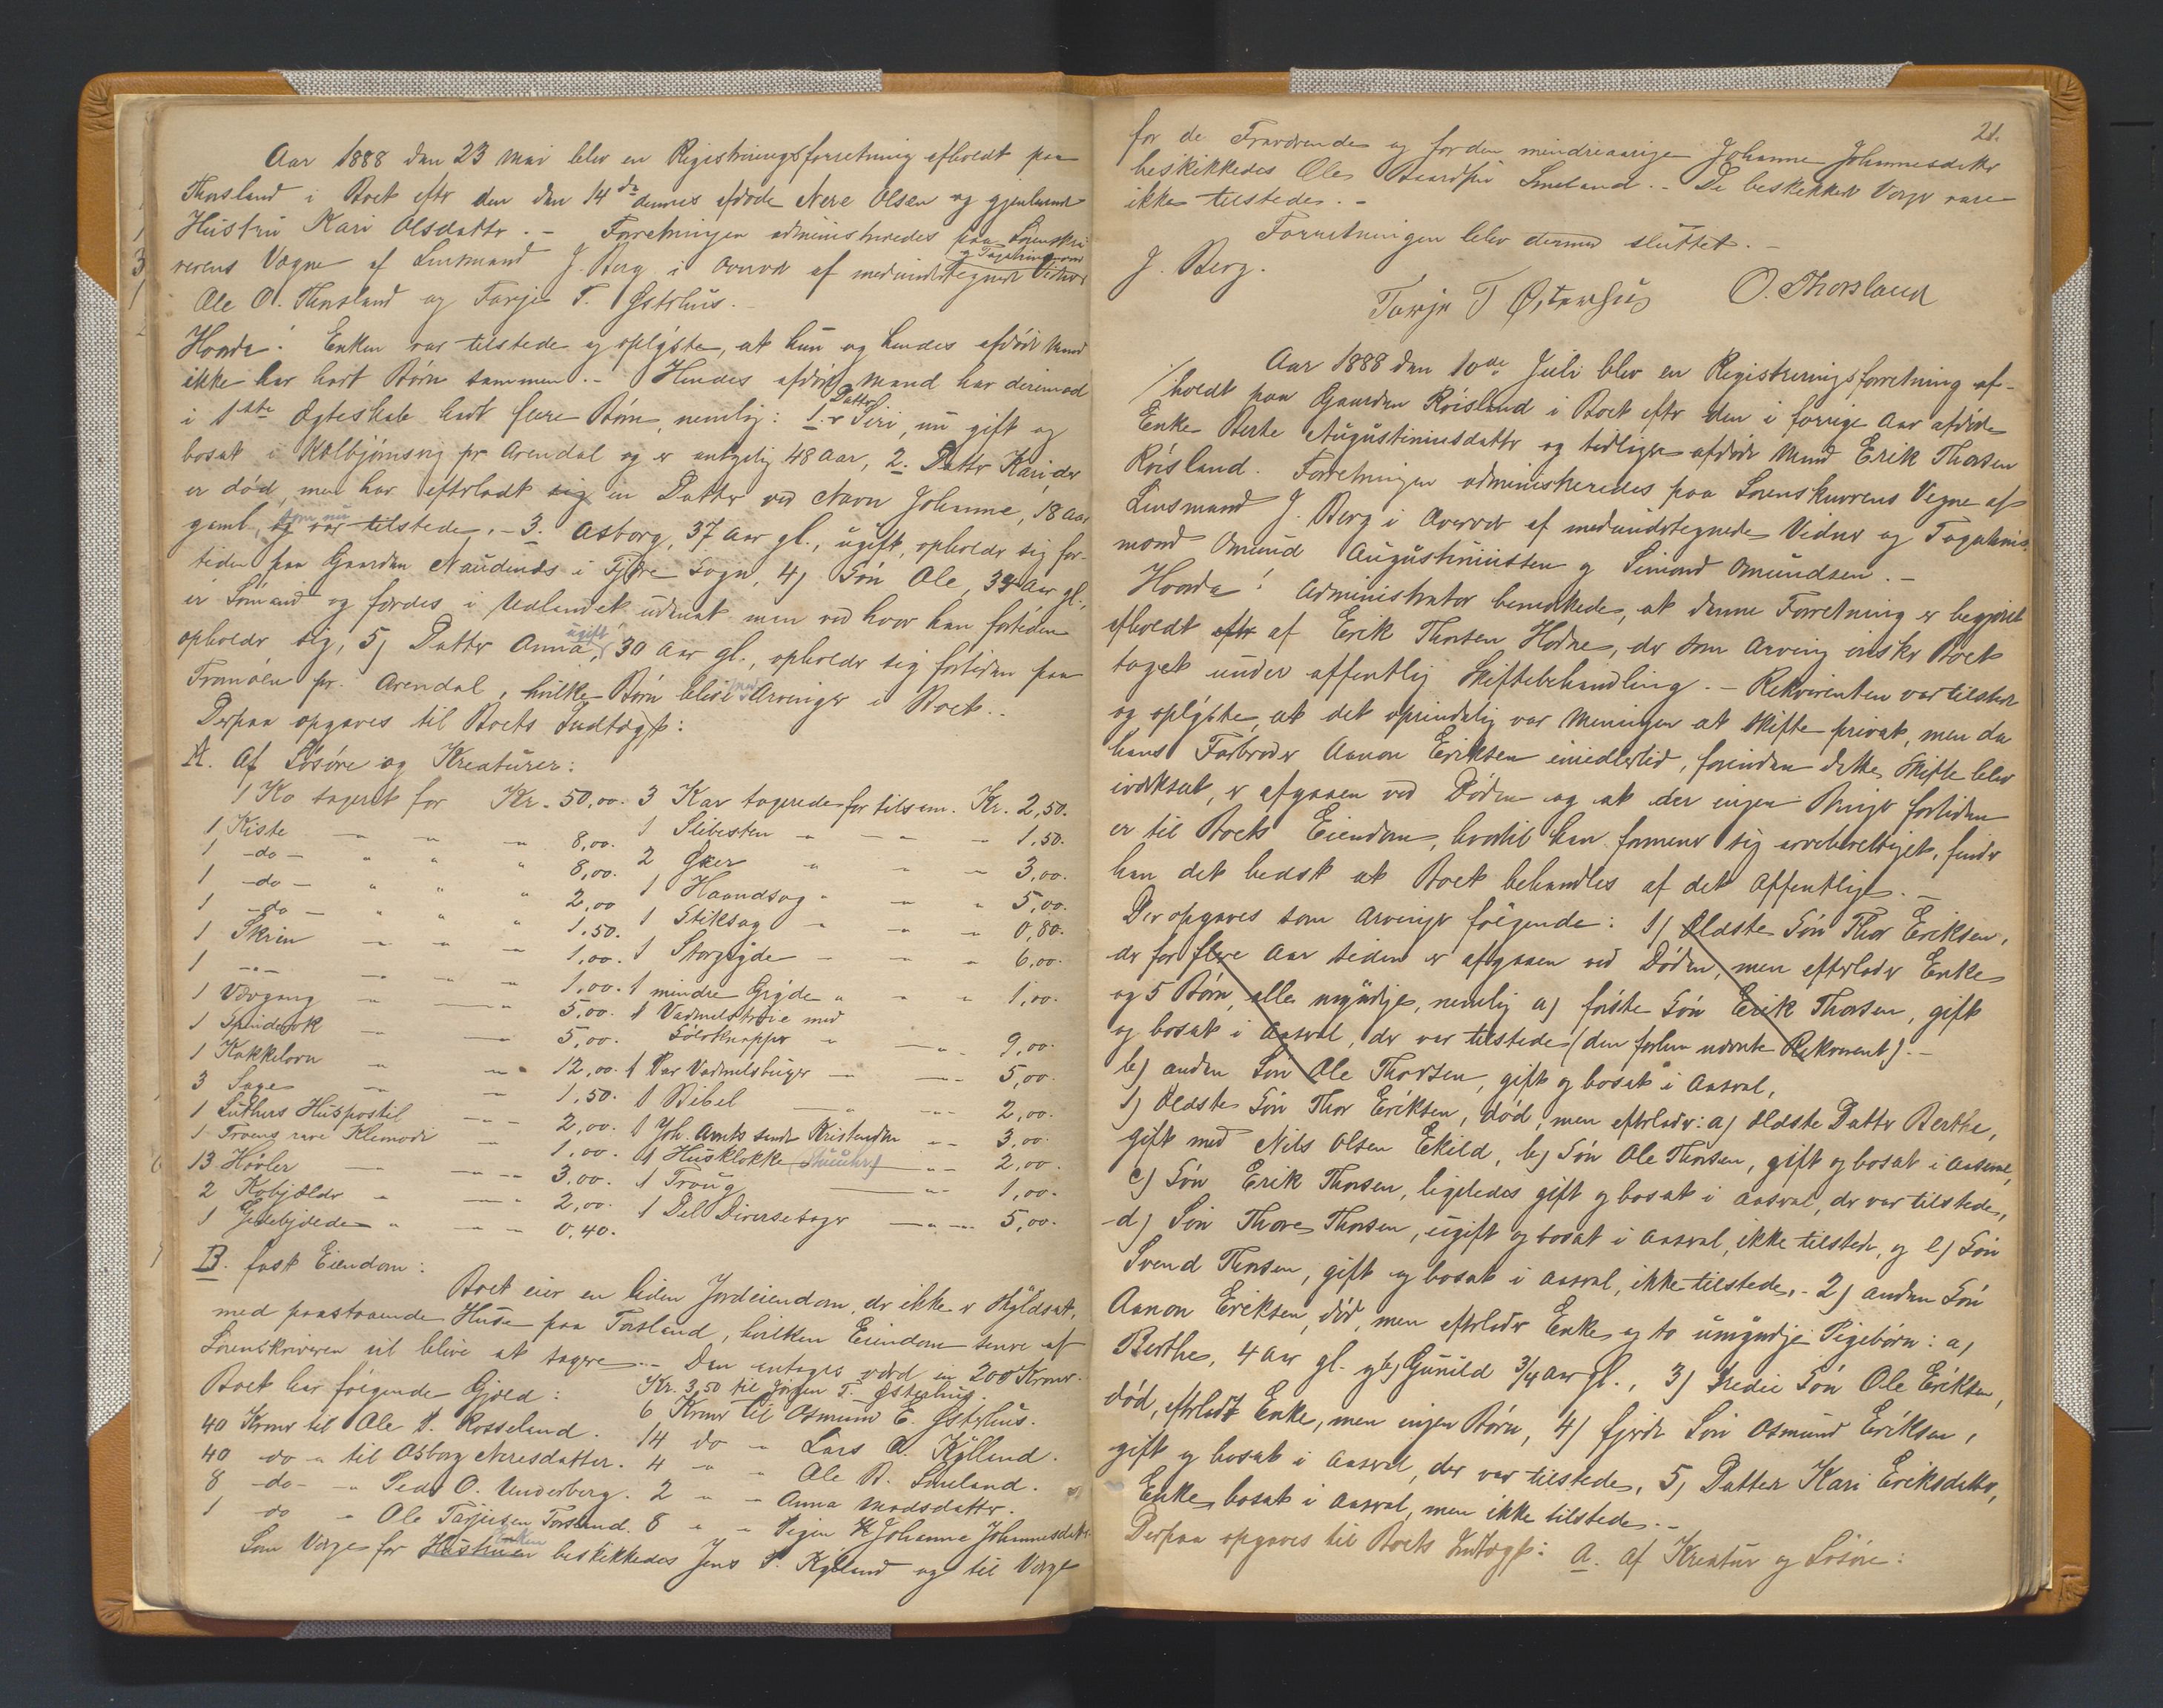 Aar 1888 den 23 Mai blev en Registreringsforretning afholdt paa
Thorsland i Boet efter den den 14de dennes afdøde Nere Olsen og gjenlevende
Hustru Kari Olsdatter. - Forretningen administreredes paa Sorenskri
verens Vegne af Lensmand J. Berg i Overvær af medundertegnede Vidner og Taxationsmænd
Ole O. Thorsland og Tarje T. Østerhus. -
Hvorda: Enken var tilstede og oplyste, at hun og hendes afdøde Mand
ikke har havt Børn sammen. - Hendes afdøde Mand har derimod
i 1ste Ægteskab havt flere Børn, nemlig: 1. Datter Siri, nu gift og
bosat i Kolbjørnsvig pr Arendal og er antagelig 48 Aar, 2. Datter Kari, der
er død, men har efterladt sig en Datter ved Navn Johanne, 18 Aar
gaml, som nu var tilstede. - 3. Asborg, 37 Aar gl., ugift, opholder sig for-
tiden paa Gaarden Naudenes i Fjære Sogn, 4) Søn Ole, 34 Aar gl.,
er Sømand og færdes i Udlandet uvist men ved hvor han fortiden
opholder sig, 5) Datter Anna, ugift, 30 Aar gl., opholder sig fortiden paa
Tromøen pr. Arendal, hvilke Børn blive Arvinger i Boet. -
Derpaa opgaves til Boets Indtægt:
A. Af Løsøre og Kreaturer:
1 Ko taxeret for Kr. 50,00. 3 Kar taxerede for tilsam. Kr. 2,50.
1 Kiste - " - " 8,00. 1 Slibesten " - - " 1,50.
1 -do- " " " 8,00. 2 Øxer " - " 3,00.
1 -do- " " " 2,00 1 Haandsag " - " 5,00.
1 -do- " " " 1,50. 1 Stiksag " - " 0,80.
1 Skrin - " - " 1,00. 1 Storgryde - - " 6,00.
1 -"- - " - " 1,00. 1 mindre Gryde " - " 1,00.
1 Vævgang " - " 5,00. 1 Vadmelstrøie med
1 Spinderok - " 5,00. Sølvknapper " - " 9,00.
1 Kakkelovn " - " 12,00. 1 Par Vadmelsbuxer - - " 5,00.
3 Sage - " 1,50. 1 Bibel - " - " 2,00.
1 Luthers Huspostil - " 2,00. 1 Joh. Arnts sande Kristendom " - 3,00.
1 Troens rare Klenodi - " 1,00. 1 Husklokke (Stueuhr) " - 2,00.
13 Høvler - - " - " 3,00. 1 Traug - " - 1,00.
2 Kobjælder " - - " 2,00. 1 Del Diversesager - " - 5,00.
1 Gjedebjælde " - - " 0,40.
B. fast Eiendom:
Boet eier en liden Jordeiendom, der ikke er skyldsat,
med paastaaende Huse paa Torsland, hvilken Eiendom senere af
Sorenskriveren vil blive at taxere. - Den antages værd en 200 Kroner.
Boet har følgende Gjæld: Kr. 3,50 til Jørgen T. Østerhus.
40 Kroner til Ole T. Rosseland. 6 Kroner til Osmund E. Østerhus.
40 do " til Asborg Neresdatter. 14 do " Lars A. Kylland.
8 -do- " Peder O. Underberg. 4 " " Ole B. Smeland.
1 do " Ole Tarjeisen Torsland. 2 " " Anna Madsdatter.
8 " " Pigen Johanne Johannesdatter.
Som Verge for Hustruen Enken beskikkedes Jens P. Kylland og til Verge
21.
for de Fraværende og for den mindreaarige Johanne Johannesdatter
beskikkedes Ole Smeland. - De beskikkede Verger vare
ikke tilstede. -
Forretningen blev dermed sluttet. -
J. Berg.
Tarje T Østerhus O. Thorsland
Aar 1888 den 10de Juli blev en Registreringsforretning af-
holdt paa Gaarden Róisland i Boet efter den i forrige Aar afdøde
Enke Berte Augustiniusdatter og tidligere afdøde Mand Erik Thorsen
Róisland. Forretningen administreredes paa Sorenskriverens Vegne af
Lensmand J. Berg i Overvær af medundertegnede Vidner og Taxations-
mænd Omund Augustiniussen og Simond Omundsen. -
Hvorda: Administrator bemærkede, at denne Forretning er begjært
afholdt efter af Erik Thorsen Hodne, der som Arving ønsker Boet
taget under offentlig Skiftebehandling. - Rekvirenten var tilstede
og oplyste, at det oprindelig var Meningen at skifte privat, men da
hans Farbroder Aanon Eriksen imidlertid, forinden dette Skifte blev
iværksat, er afgaaen ved Døden og at der ingen Bruger fortiden
er til Boets Eiendom, hvortil han formener sig arveberettiget, finder
han det bedst at Boet behandles af det Offentlige. -
Der opgaves som Arvinger følgende: 1) Ældste Søn Thor Eriksen,
der for flere Aar siden er afgaaen ved Døden, men efterlader Enke
og 5 Børn, alle myndige, nemlig a) første Søn Erik Thorsen, gift
og bosat i Aaseral, der var tilstede (den forhen nævnte Rekvirent). -
b) anden Søn Ole Thorsen, gift og bosat i Aaseral,
1) Ældste Søn Thor Eriksen, død, men efterlader: a) Ældste Datter Berthe,
gift med Nils Olsen Ekild, b) Søn Ole Thorsen, gift og bosat i Aaseral,
c) Søn Erik Thorsen, ligeledes gift og bosat i Aaseral, der var tilstede,
d) Søn Thore Thorsen, ugift og bosat i Aaseral, ikke tilstede, og e) Søn
Svend Thorsen, gift og bosat i Aaseral, ikke tilstede, - 2) anden Søn
Aanon Eriksen, død, men efterlader Enke og to umyndige Pigebørn: a)
Berthe, 4 Aar gl. og b) Gunild 3/4 Aar gl., 3) tredie Søn Ole Eriksen,
død, efterladt Enke, men ingen Børn, 4) fjerde Søn Osmund Eriksen,
gift og bosat i Aaseral, der var tilstede, 5) Datter Kari Eriksdatter,
Enke, bosat i Aaseral, men ikke tilstede. -
Derpaa opgaves til Boets Indtægt: A. Af Kreatur og Løsøre: